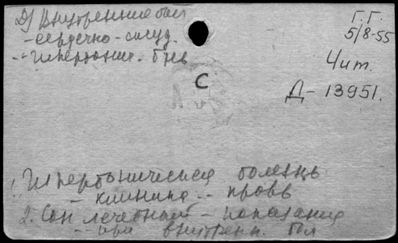 Д) Внутренние бол
- сердечно - сосуд.
- гипертонич. бнь
Г. Г.
5/8-55
Чит.
С
Д- 13951.
1. Гипертоническая болезнь
- клиника --
2. Сон лечебный - показания
- при внутренн. бол